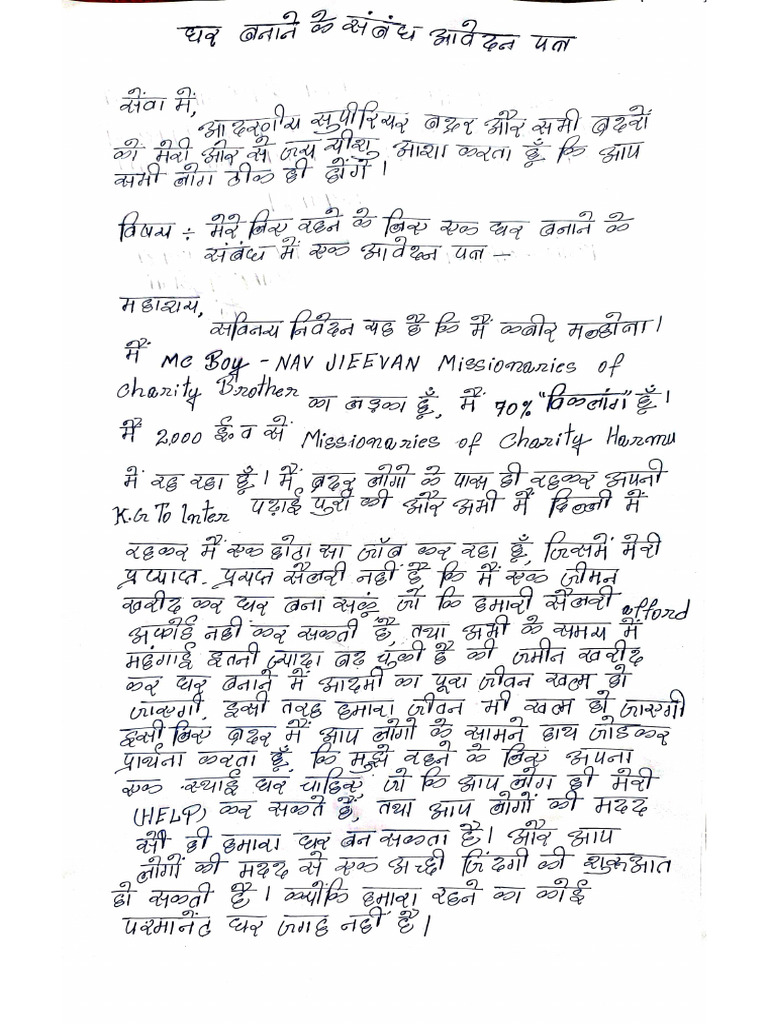 घर बनाने के संबंध आवेदन पत्र
सेंवा में,
आदरणीय सुपीरियर ब्रदर और सभी ब्रदरों
को मेरी ओर से जय यीशु आशा करता हूँ कि आप
सभी लोग ठीक ही होंगें।
विषय ÷ मेरे लिए रहने के लिए एक घर बनाने के
संबंध में एक आवेदन पत्र -
महाशय,
सविनय निवेदन यह है कि मैं कबीर मल्होत्रा।
मैं MC Boy - NAV JIEEVAN Missionaries of
Charity Brother का लड़का हूँ, मैं 70% "विकलांग" हूँ।
मैं 2,000 ई॰व सें Missionaries of Charity Harmu
में रह रहा हूँ। मैं ब्रदर लोगो के पास ही रहकर अपनी
K.G To Inter पढ़ाई पुरी की और अभी मैं दिल्ली में
रहकर मैं एक छोटा सा जॉब कर रहा हूँ, जिसमें मेरी
प्रप्याप्त. प्रयप्त सैलरी नहीं है कि मैं एक जीमन
खरीद कर घर बना सकूं जो कि हमारी सैलरी afford
अफोर्ड नहीं कर सकती है, तथा अभी के समय में
महंगाई इतनी ज्यादा बढ़ चुकी है की जमीन खरीद
कर घर बनाने में आदमी का पूरा जीवन खत्म हो
जाएगी, इसी तरह हमारा जीवन भी खत्म हो जाएगी
इसी लिए ब्रदर मैं आप लोगो के सामने हाथ जोड़कर
प्रार्थना करता हूँ, कि मुझे रहने के लिए अपना
एक स्थाई घर चाहिए जो कि आप लोग ही मेरी
(HELP) कर सकते हैं, तथा आप लोगों की मदद
सें ही हमारा घर बन सकता है। और आप
लोगों की मदद से एक अच्छी जिंदगी की शुरूआत
हो सकती है। क्योंकि हमारा रहने का कोई
परमानेंट घर जगह नहीं है।